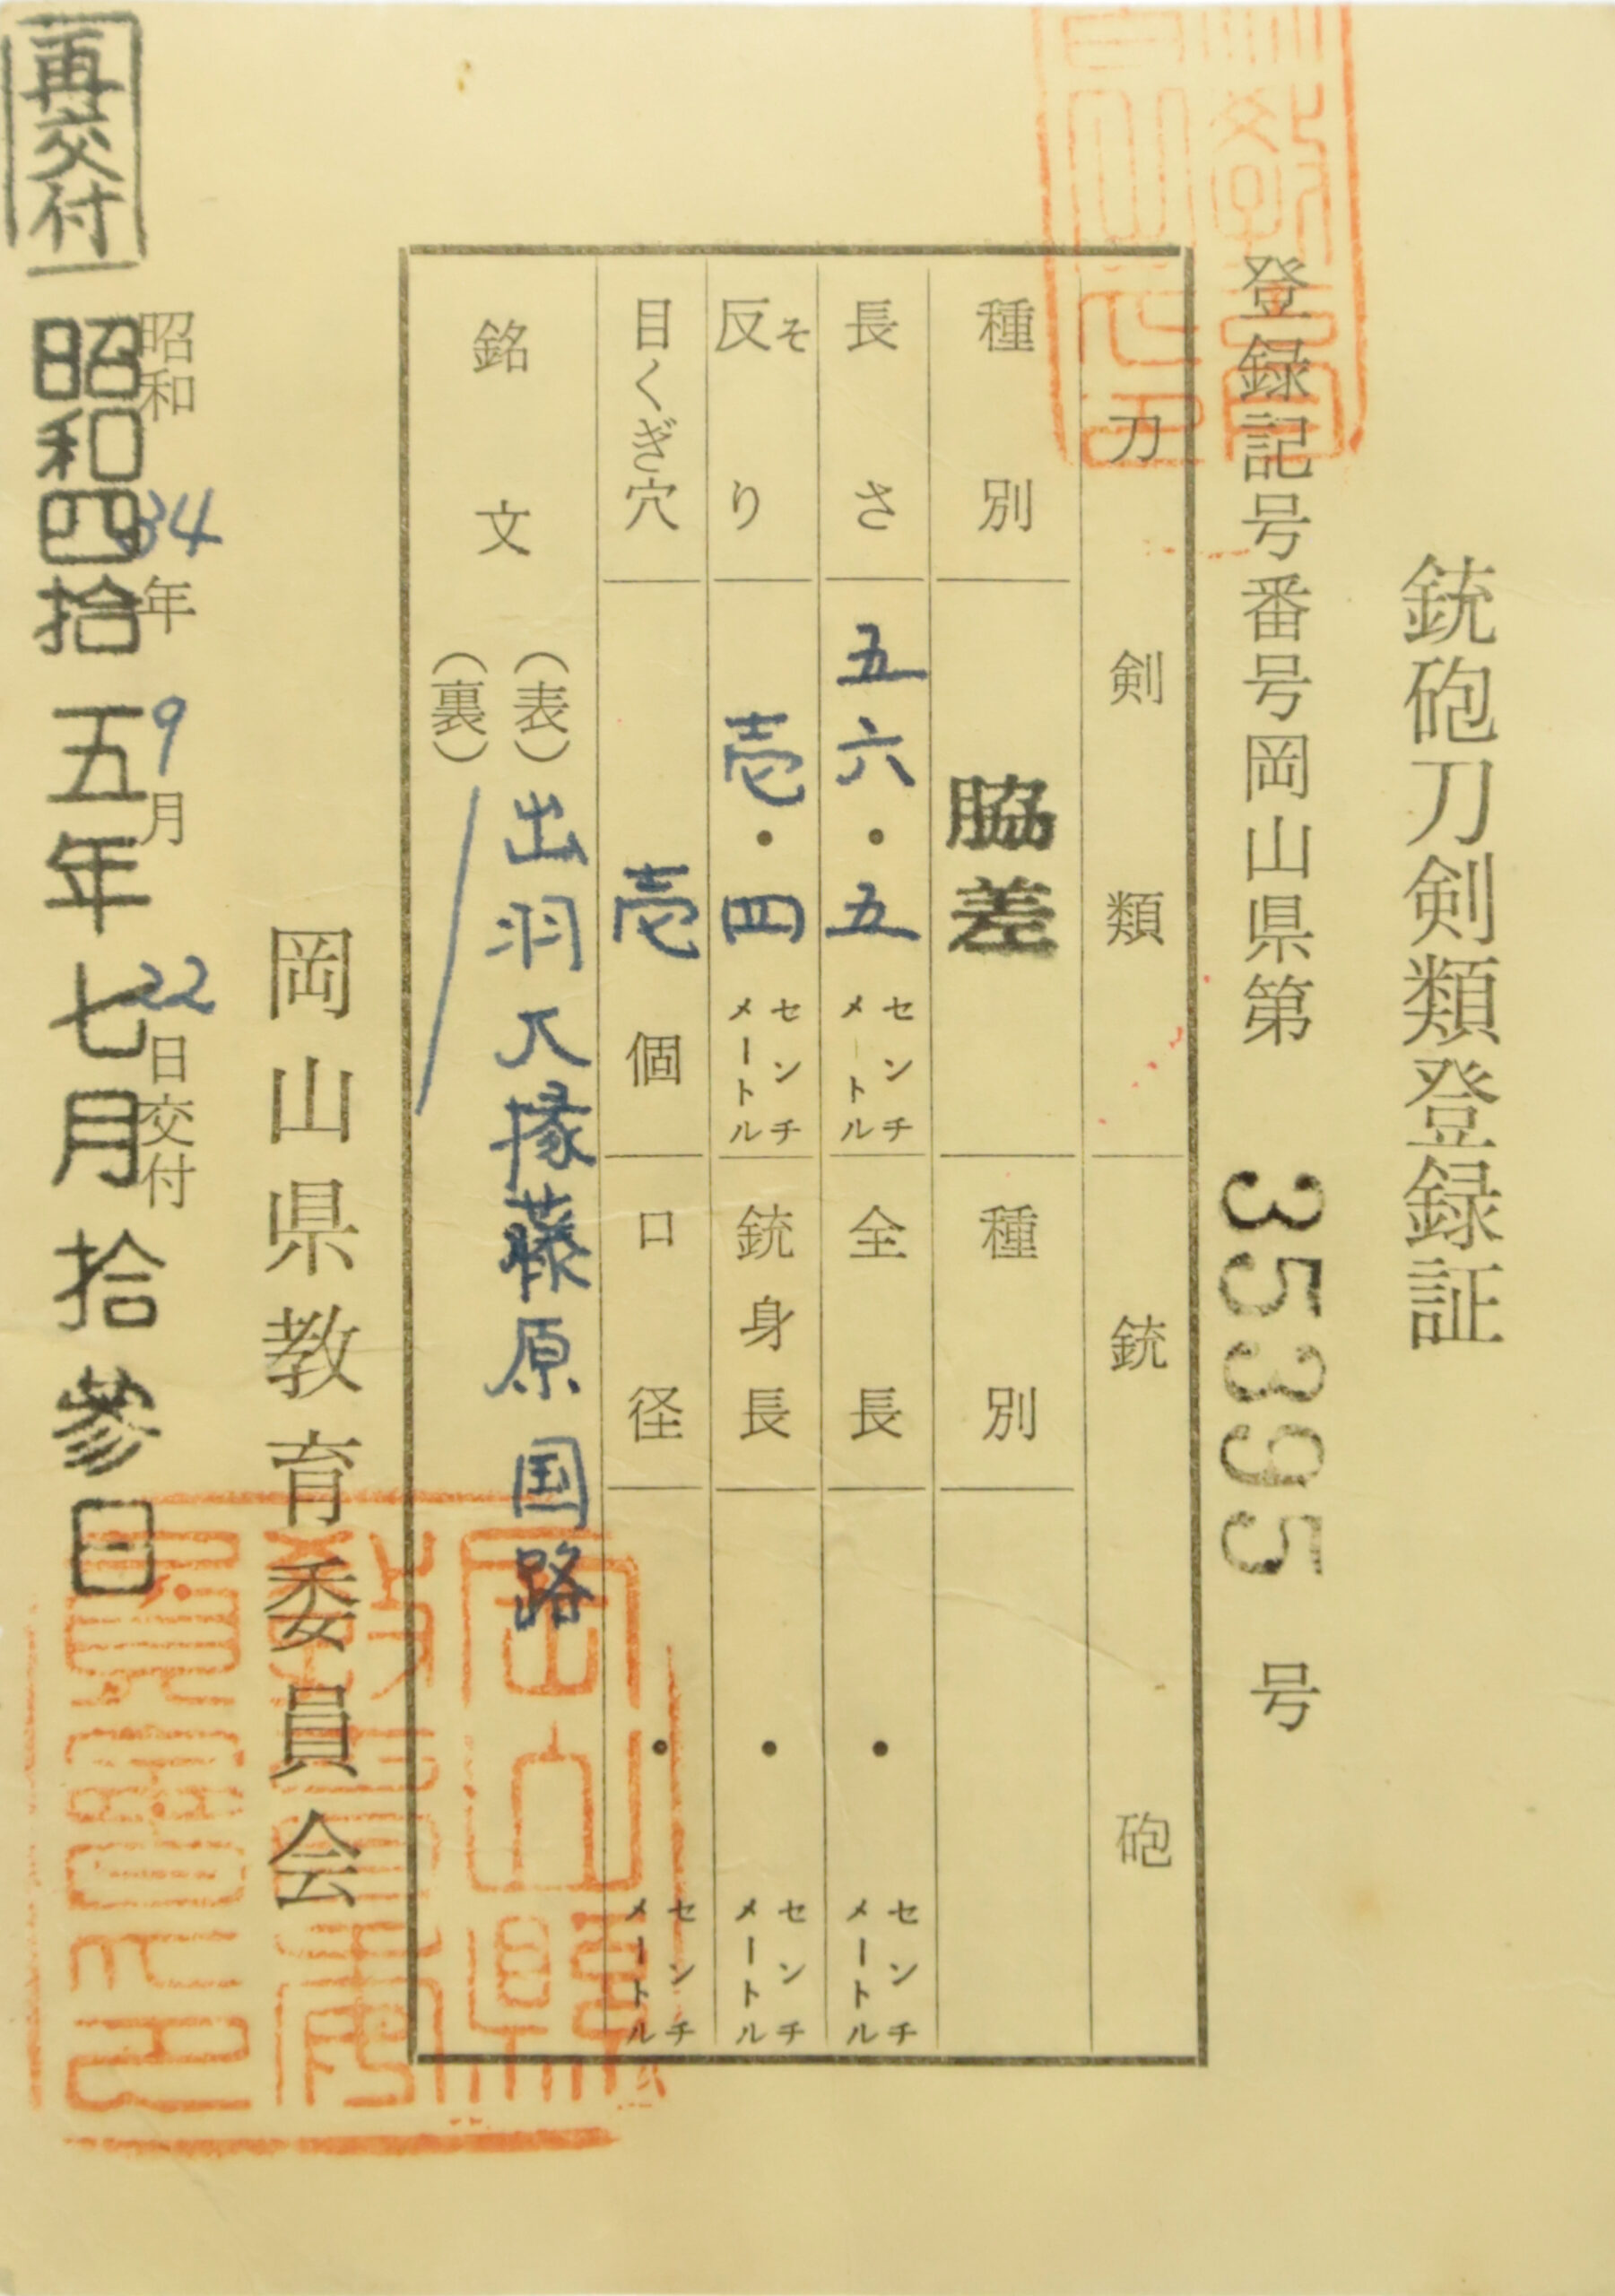 銃砲刀剣類登録証
登録記号番号岡山県第 35395 号
刀剣類
銃砲
種別 脇差
種別
長さ 五六・五 センチメートル
全長 ・ センチメートル
反り そ 壱・四 センチメートル
銃身長 ・ センチメートル
目くぎ穴 壱 個
口径 ・ センチメートル
銘文 (表) 出羽大掾藤原国路
(裏)
岡山県教育委員会
昭和34年9月22日交付
再交付 昭和四拾五年七月拾参日